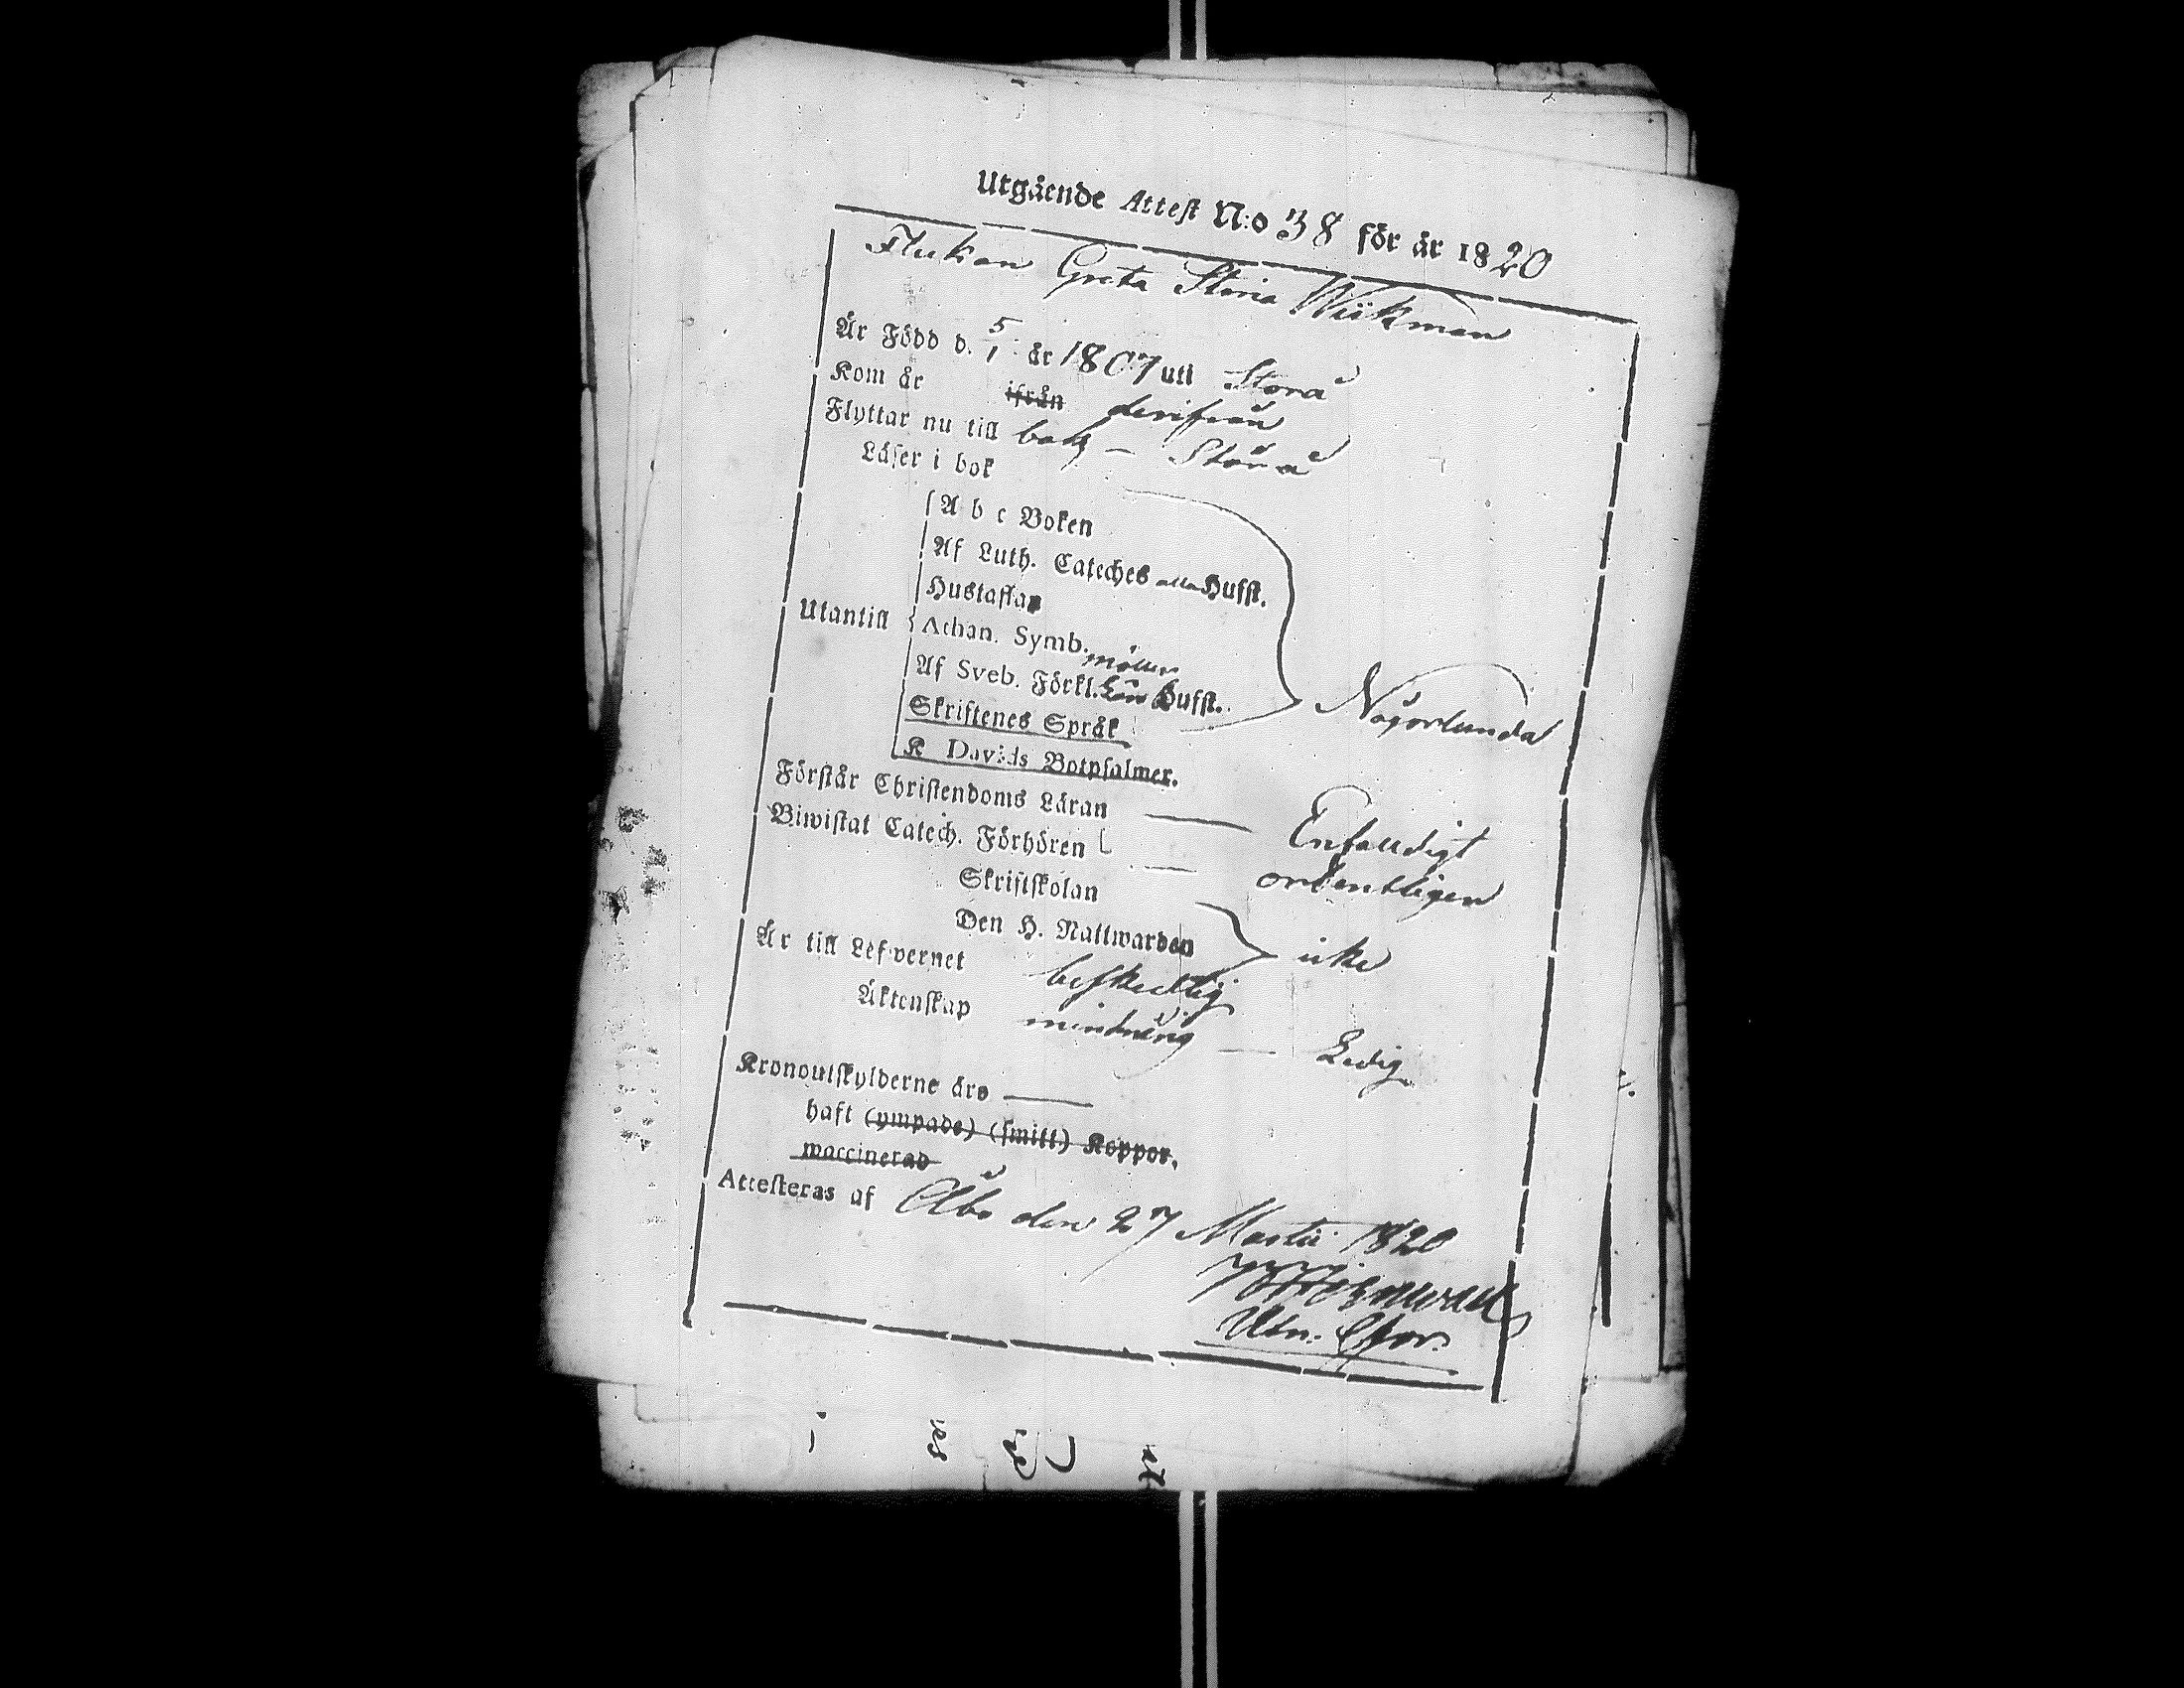 Utgående Attest N:o 38 för år 1820
Flickan Greta Stina Wiikman
Är Född d. 5/1 år 1807 uti Storå
Kom år ifrån derifrån
Flyttar nu till bak — Storå
Läser i bok
A b c Boken
Af Luth. Cateches alla Hufst.
Hustaflan
Utantill Athan. Symb.
Af Sveb. Förkl. Hufst.
Någorlunda
Skriftenes Språk
K Davids Botpsalmer.
Förstår Christendoms Läran — Enfaldigt
Biwistat Catech. Förhören — ordentligen
Skriftskolan
Den H. Nattwarden icke
Är till Lefvernet beskedlig
Äktenskap minderårig — Ledig
Kronoutskylderne äro —
haft (ympade) (smitt) Koppor,
waccinerad
Attesteras af Åbo den 27 Martii 1820